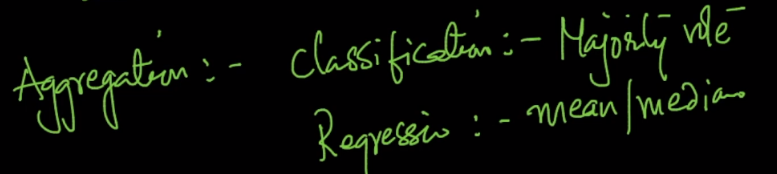 Aggregation :- Classification :- Majority vote
Regression :- mean/median